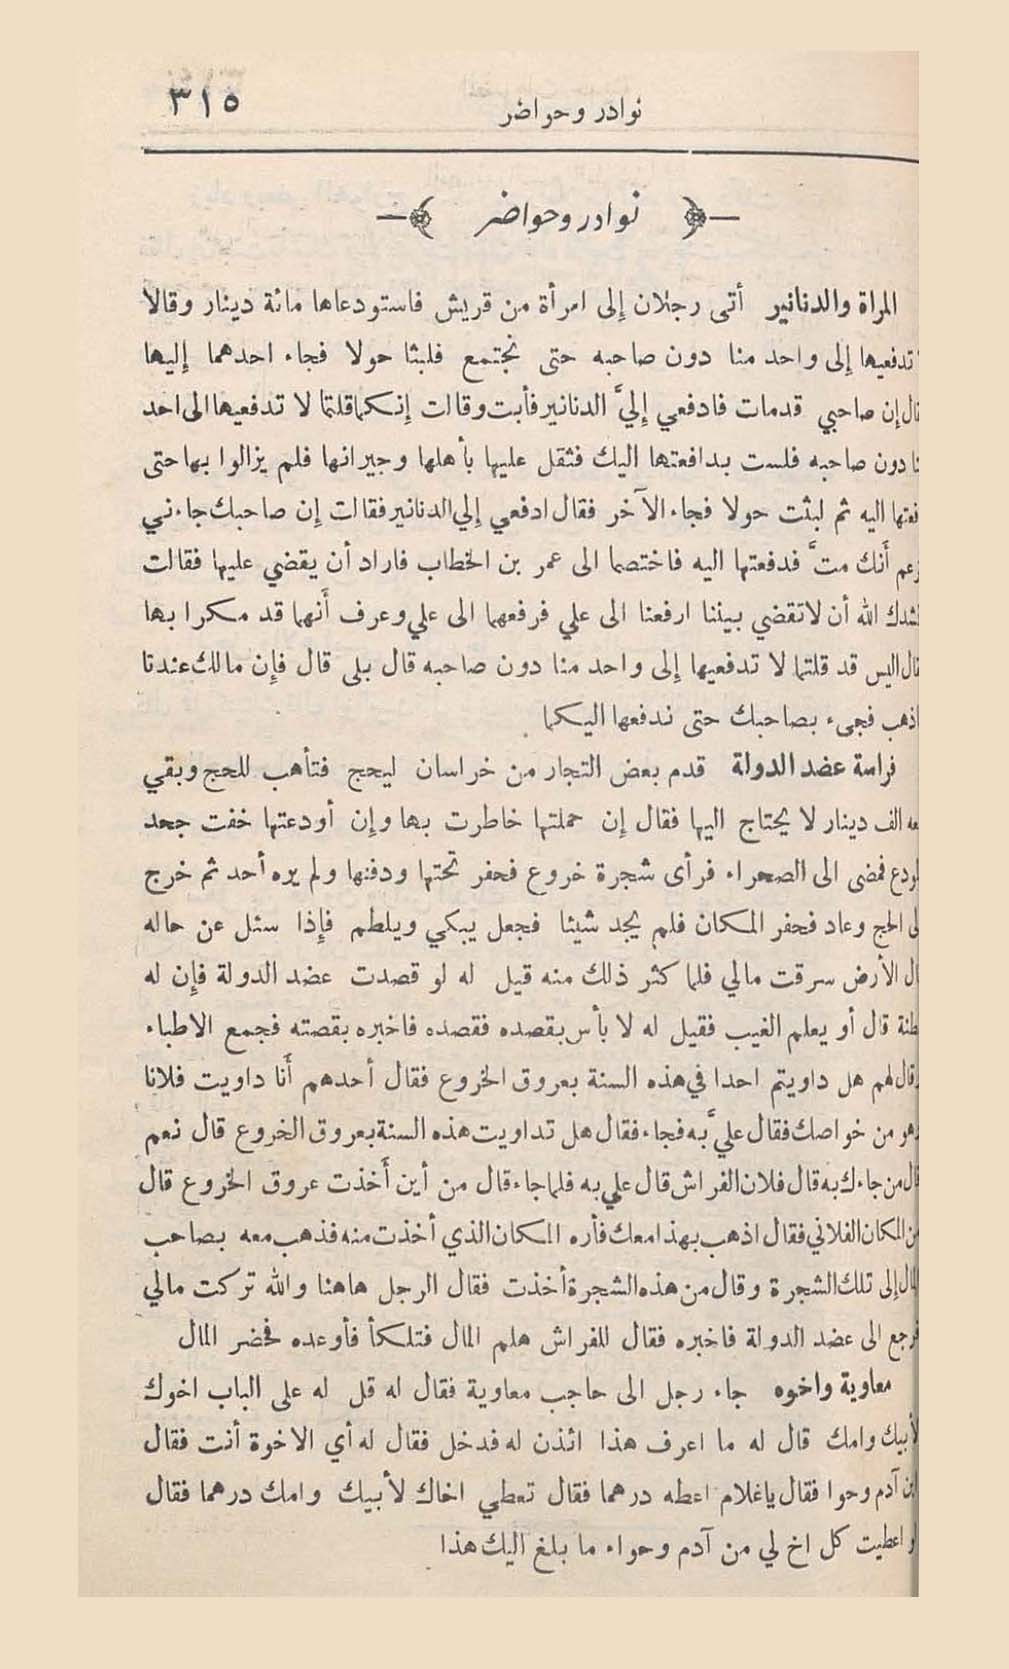 نوادر وحواضر
٣١٥
نوادر وحواضر
المراة والدنانير أتى رجلان إلى امرأة من قريش فاستودعاها مائة دينار وقالا
تدفعيها إلى واحد منا دون صاحبه حتى نجتمع فلبثا حولا فجاء احدهما إليها
قال إن صاحبي قدمات فادفعي إليَّ الدنانير فأبت وقالت إنكما قلتما لا تدفعيها الى احد
دون صاحبه فلست بدافعتها اليك فثقل عليها بأهلها وجيرانها فلم يزالوا بها حتى
اليه ثم لبثت حولا فجاء الآخر فقال ادفعي إلي الدنانير فقالت إن صاحبك جاءني
أنك متَّ فدفعتها اليه فاختصما الى عمر بن الخطاب فاراد أن يقضي عليها فقالت
الله أن لا تقضي بيننا ارفعنا الى علي فرفعهما الى علي وعرف أنهما قد مكرا بها
قال اليس قد قلتما لا تدفعيها إلى واحد منا دون صاحبه قال بلى قال فإن مالك عندنا
اذهب فجىء بصاحبك حتى ندفعها اليكما
فراسة عضد الدولة قدم بعض التجار من خراسان ليحج فتأهب للحج وبقي
الف دينار لا يحتاج اليها فقال إن حملتها خاطرت بها وإن أودعتها خفت جحد
فمضى الى الصحراء فرأى شجرة خروع فحفر تحتها ودفنها ولم يره أحد ثم خرج
الحج وعاد فحفر المكان فلم يجد شيئا فجعل يبكي ويلطم فإذا سئل عن حاله
الأرض سرقت مالي فلما كثر ذلك منه قيل له لو قصدت عضد الدولة فإن له
قال أو يعلم الغيب فقيل له لا بأس بقصده فقصده فاخبره بقصته فجمع الاطباء
وقال لهم هل داويتم احدا في هذه السنة بعروق الخروع فقال أحدهم أنا داويت فلانا
وهو من خواصك فقال عليَّ به فجاء فقال هل تداويت هذه السنة بعروق الخروع قال نعم
قال من جاءك به قال فلان الفراش قال علي به فلما جاء قال من أين أخذت عروق الخروع قال
من المكان الفلاني فقال اذهب بهذا معك فأره المكان الذي أخذت منه فذهب معه بصاحب
المال إلى تلك الشجرة وقال من هذه الشجرة أخذت فقال الرجل هاهنا والله تركت مالي
فرجع الى عضد الدولة فاخبره فقال للفراش هلم المال فتلكأ فأوعده فحضر المال
معاوية واخوه جاء رجل الى حاجب معاوية فقال له قل له على الباب اخوك
لأبيك وامك قال له ما اعرف هذا ائذن له فدخل فقال له أي الاخوة أنت فقال
ابن آدم وحوا فقال ياغلام اعطه درهما فقال تعطي اخاك لأبيك وامك درهما فقال
اعطيت كل اخ لي من آدم وحواء ما بلغ اليك هذا